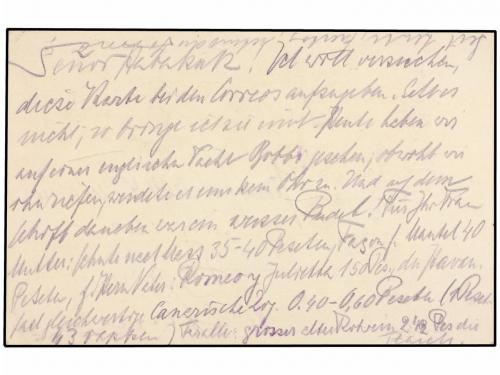 Señor Habakuk! Ich will versuchen,
diese Karte bei den Correos aufzugeben. Geht es
nicht, so bringe ich sie mit. Heute haben wir
auf einer englischen Yacht Bobbi gesehen, obwohl wir
ihn riefen, wendete er uns kein Ohr zu. Und auf dem
Schiff daneben war ein weisser Pudel. Für Ihre Frau
Mutter: Schuhe nach Mass 35-40 Peseten, Façon f. Mantel 40
Peseten, f. Herrn Vater: Romeo y Julietta 1.50 Pes., der Havan.
gleichwertige Canarische Zig. 0.40-0,60 Peseten (1 Peset
43 Rappen) Für alle: grosser alter Rotwein 2 1/2 Pes die
Flasche.